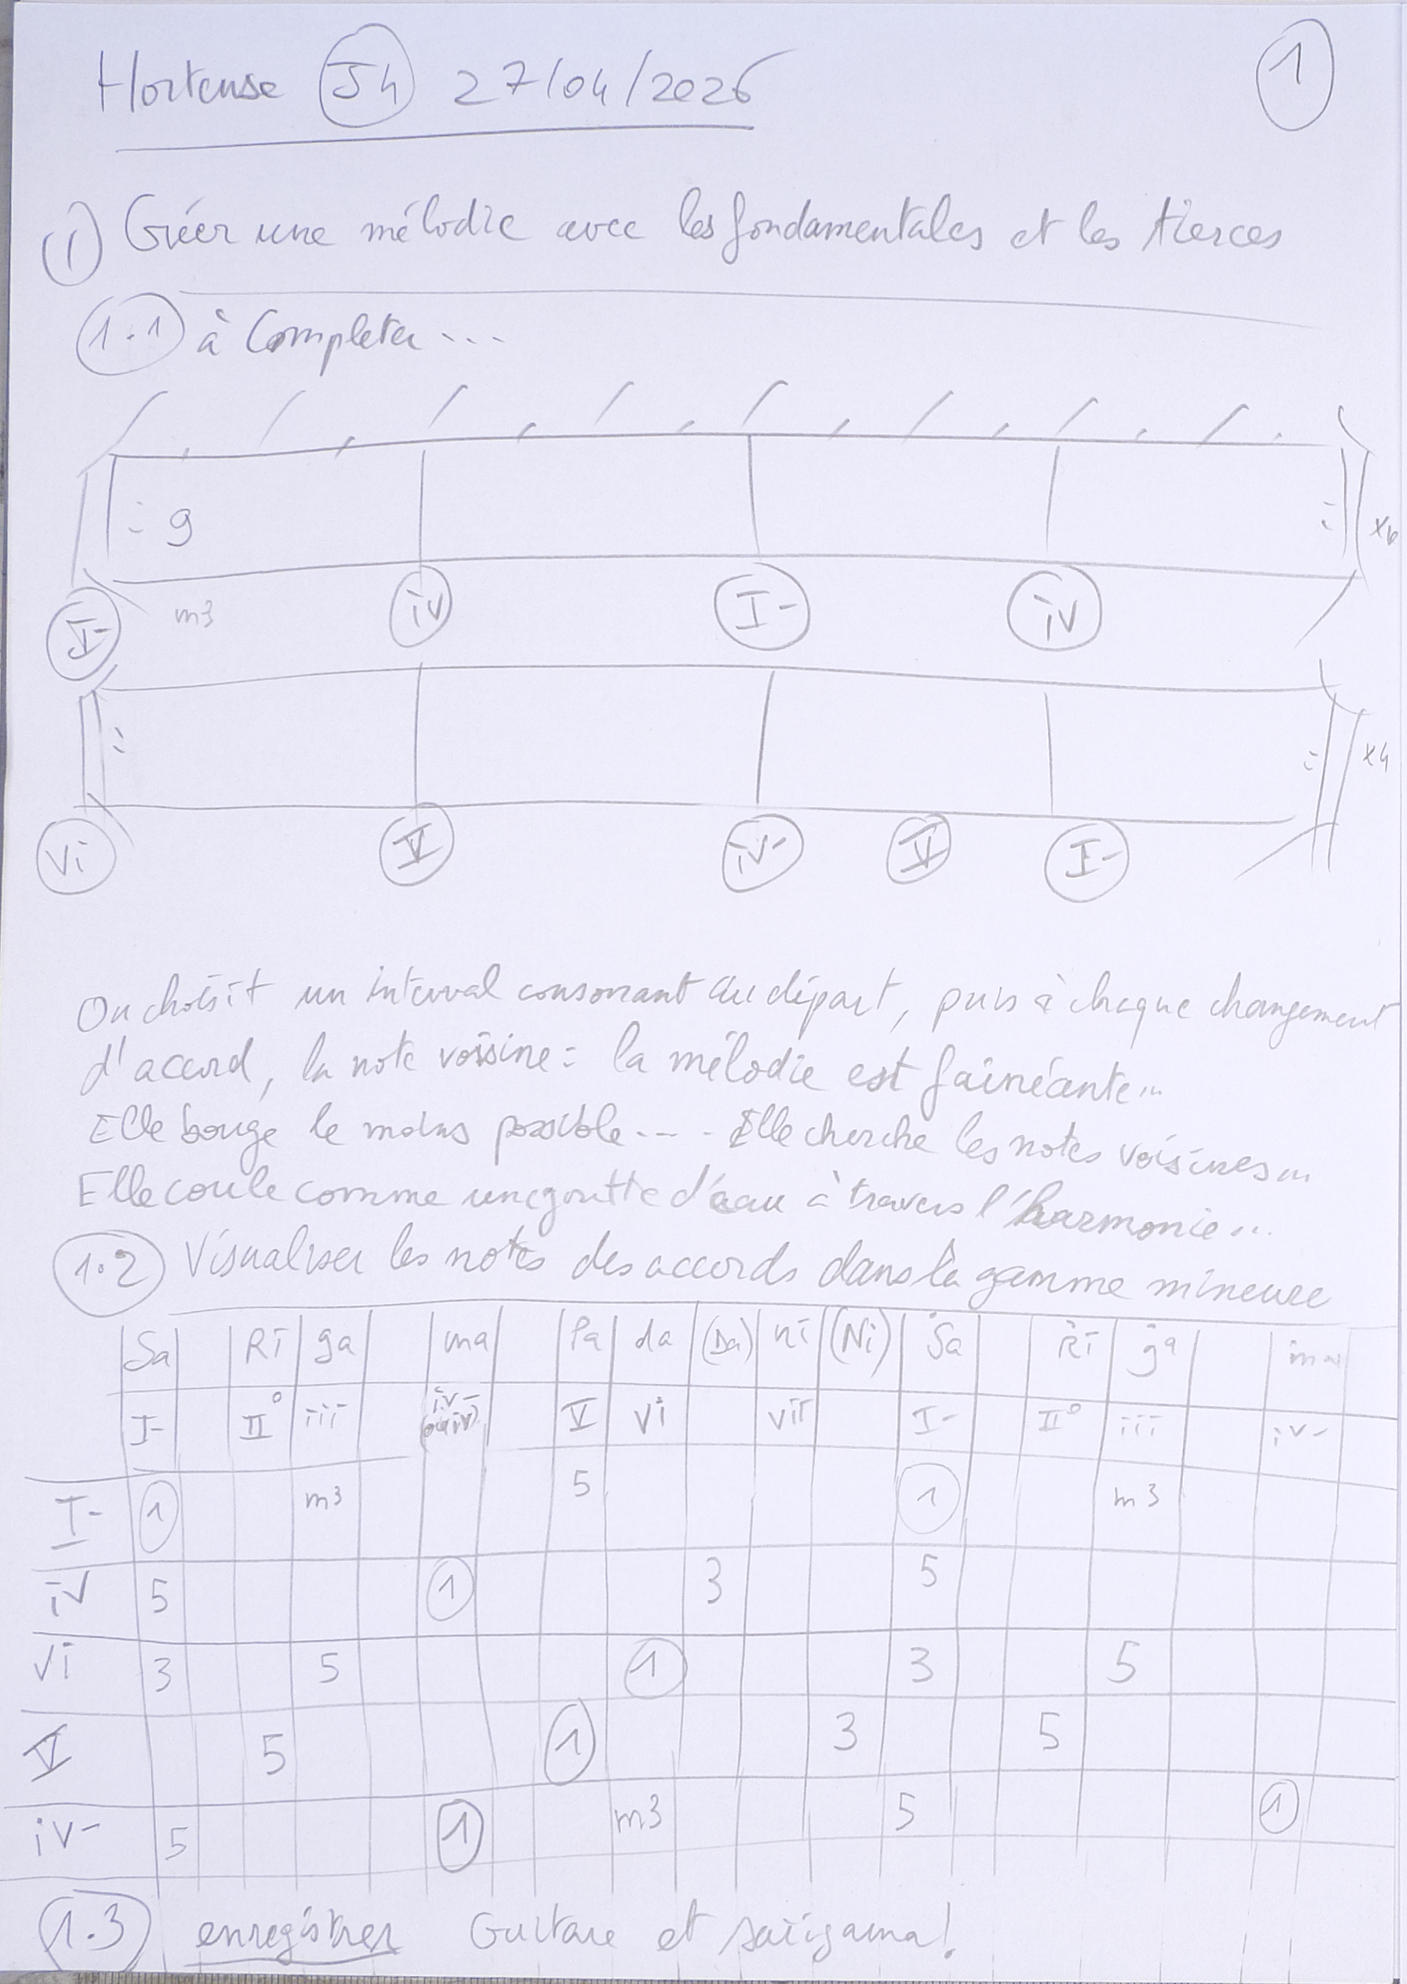 Hortense J4 27/04/2026
1
① Créer une mélodie avec les fondamentales et les tierces
1.1 à Completer ...
: g : x4
I- m3 iv I- iv
: : x4
vi V iv- V I-
On choisit un interval consonant au départ, puis à chaque changement
d'accord, la note voisine : la mélodie est fainéante...
Elle bouge le moins possible.... Elle cherche les notes voisines...
Elle coule comme une goutte d'eau à travers l'harmonie...
1.2 Visualiser les notes des accords dans la gamme mineure
Sa Ri ga ma Pa da (Da) ni (Ni) Ṡa Ṙi ġa ṁa
I- II° iii iv- (ou iv) V vi vii I- II° iii iv-
I- 1 m3 5 1 m3
iv 5 1 3 5
vi 3 5 1 3 5
V 5 1 3 5
iv- 5 1 m3 5 1
1.3 enregistrer Guitare et sarigama!